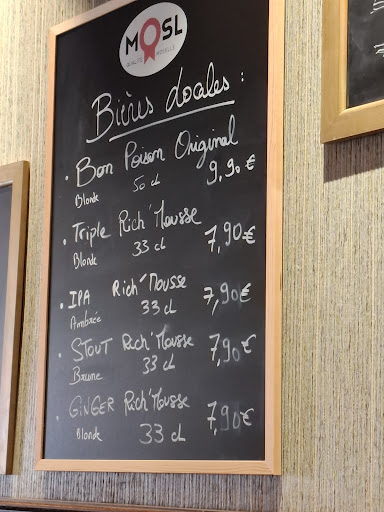 MOSL
QUALITÉ MOSELLE
Bières locales :
• Bon Poison Original
Blonde 50 cl 9,90 €
• Triple Rich'Mousse
Blonde 33 cl 7,90 €
• IPA Rich'Mousse
Ambrée 33 cl 7,90 €
• STOUT Rich'Mousse
Brune 33 cl 7,90 €
• GINGER Rich'Mousse
Blonde 33 cl 7,90 €